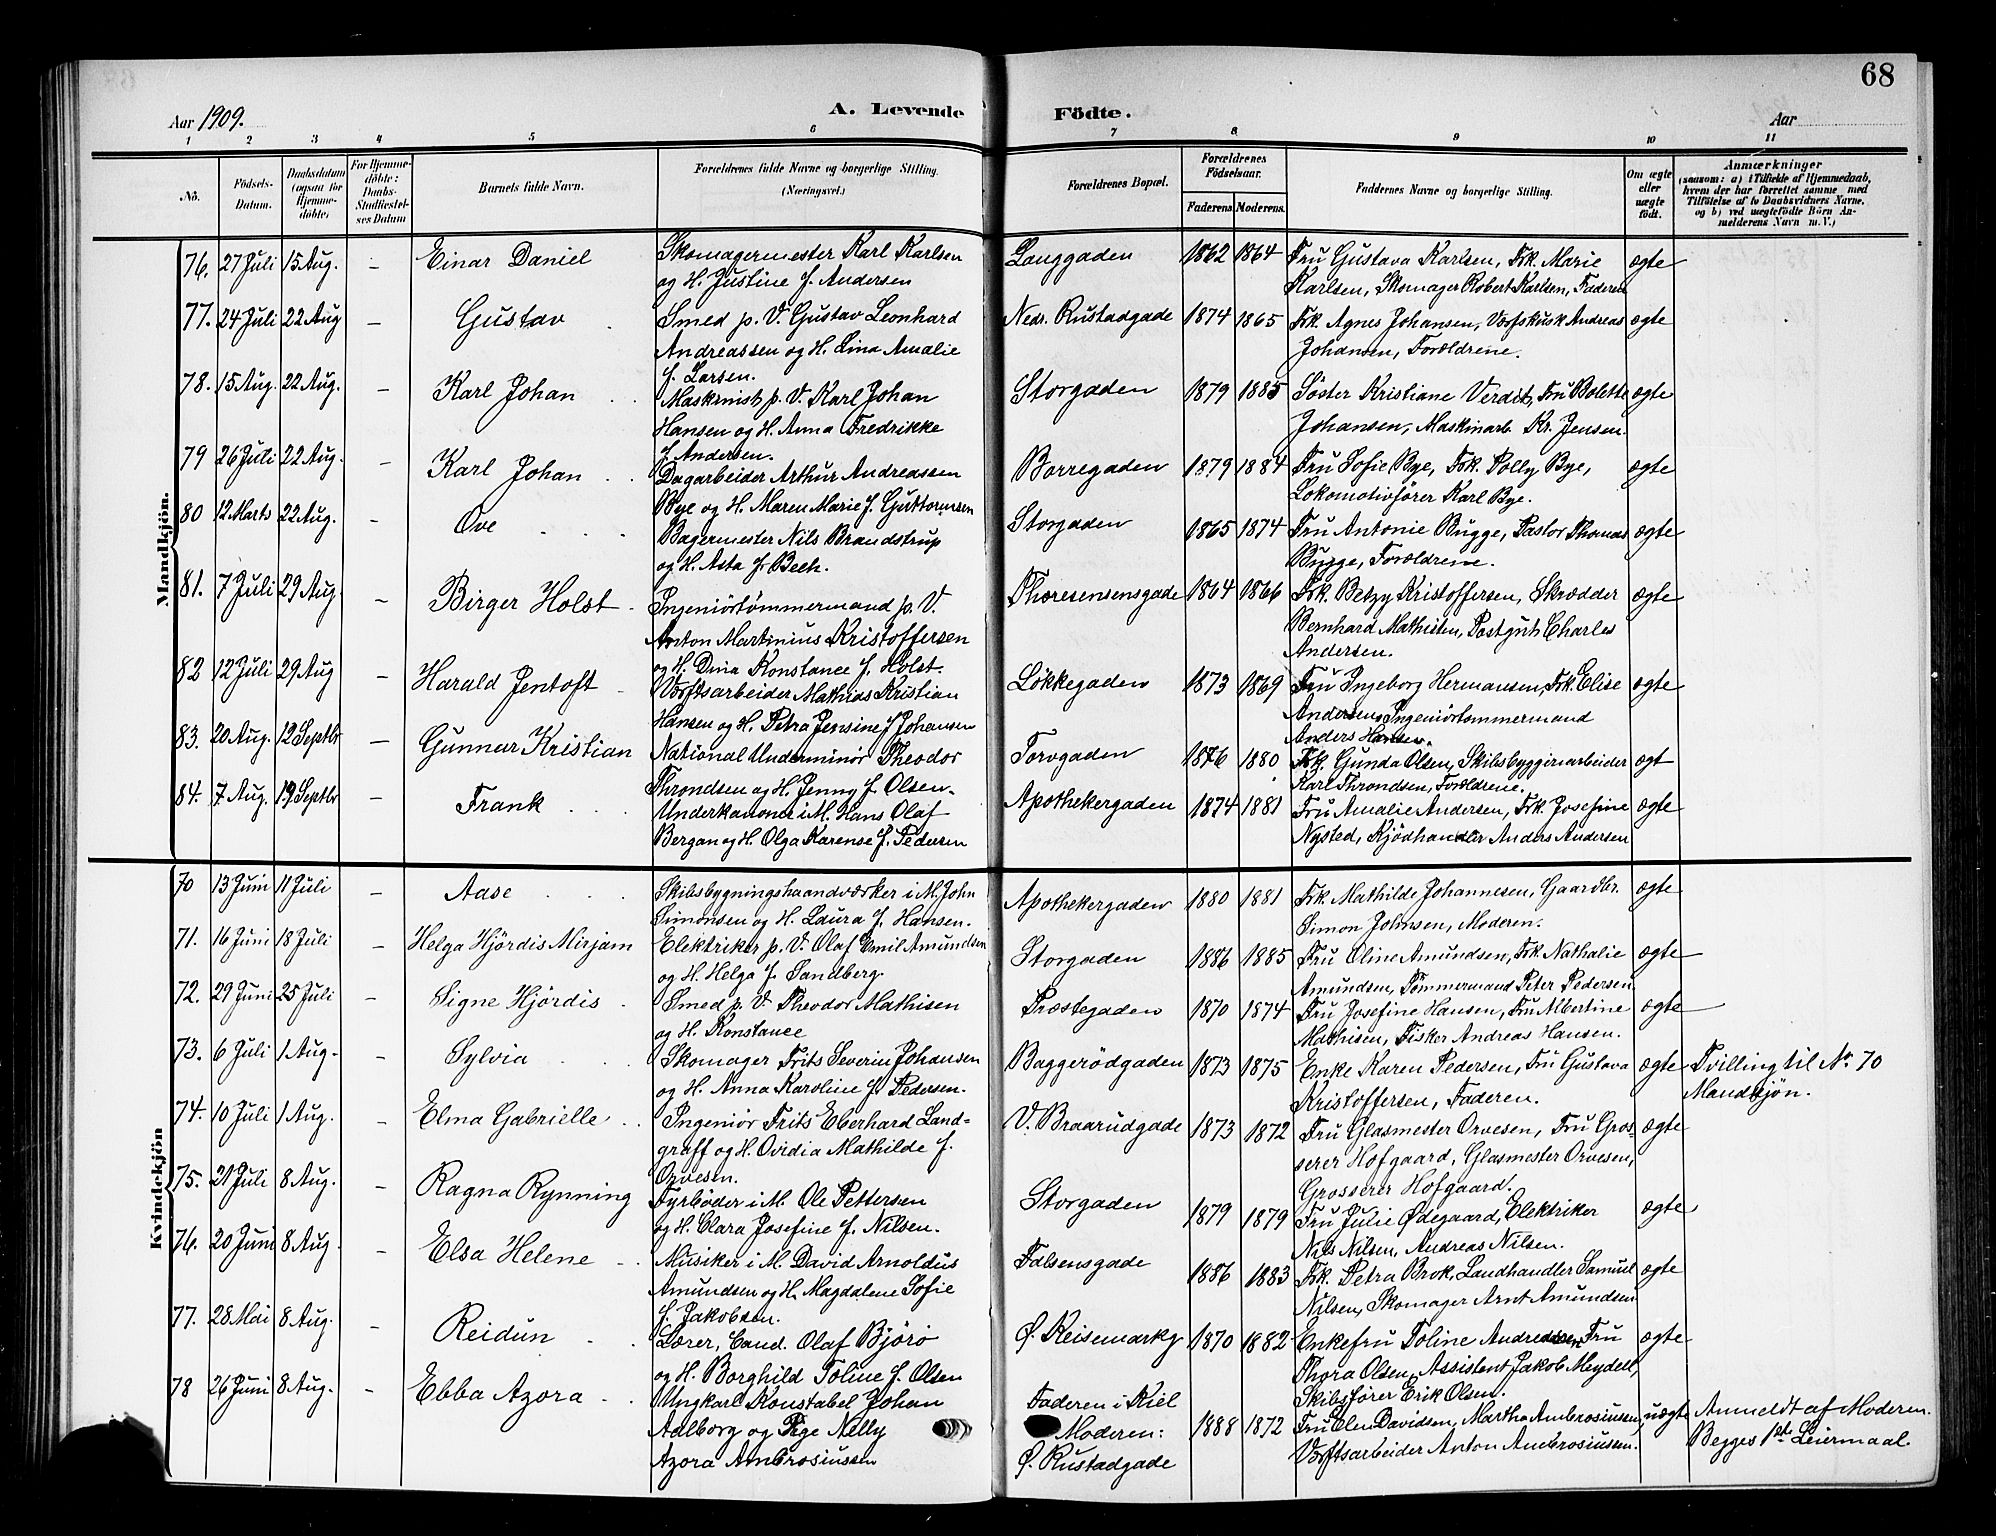 68
Aar 1909.
A. Levende Födte.
Aar
1 2 3 4 5 6 7 8 9 10 11
No.
Födsels-Datum.
Daabsdatum (ogsaa for Hjemme-döbte)
For Hjemme-döbte: Daabs-Stadfæstel-ses Datum
Barnets fulde Navn.
Forældrenes fulde Navne og borgerlige Stilling. (Næringsvei.)
Forældrenes Bopæl.
Forældrenes Födselsaar.
Faderens. Moderens.
Faddernes Navne og borgerlige Stilling.
Om ægte eller uægte födt.
Anmærkninger
(saasom: a) i Tilfælde af Hjemmedaab, hvem der har forrettet samme med Tilföielse af to Daabsvidners Navne, og b) ved uægtefödte Börn An-melderens Navn m. V.)
Mandkjön.
76. 27 Juli 15 Aug. – Einar Daniel Skomagermester Karl Karlsen Langgaden 1862 1864 Fru Gustava Karlsen, Frk. Marie ægte
og H. Justine f. Andersen Karlsen, Skomager Robert Karlsen, Faderen
77. 24 Juli 22 Aug – Gustav Smed p. V. Gustav Leonhard Neds. Rustadgade 1874 1865 Frk. Agnes Johansen, Værfskusk Andreas ægte
Andreassen og H. Lina Amalie Johansen, Forældrene.
f. Larsen.
78. 15 Aug. 22 Aug. – Karl Johan Maskinist p. V. Karl Johan Storgaden 1879 1885 Søster Kristiane Verdit, Fru Bolette ægte
Hansen og H. Anna Fredrikke Johansen, Maskinarb. Kr. Jensen.
f. Andersen.
79 26 Juli 22 Aug. – Karl Johan Dagarbeider Arthur Andreassen Borregaden 1879 1884 Fru Sofie Bye, Frk. Polly Bye, ægte
Bye og H. Maren Marie f. Guttormsen Lokomotivfører Karl Bye.
80 12 Marts 22 Aug. – Ove Bagermester Nils Brandstrup Storgaden 1865 1874 Fru Antonie Bugge, Pastor Thomas ægte
og H. Asta f. Bech. Bugge, Forældrene.
81. 7 Juli 29 Aug. – Birger Holst Ingeniörtømmermand p. V. Thoresensensgade 1864 1866 Frk. Betzy Kristoffersen, Skrædder ægte
Anton Martinius Kristoffersen Bernhard Mathisen, Postgut Charles
og H. Dina Konstance f. Holst. Andersen.
82 12 Juli 29 Aug – Harald Jentoft Værftsarbeider Mathias Kristian Løkkegaden 1873 1869 Fru Ingeborg Hermansen, Frk. Elise ægte
Hansen og H. Petra Jensine f Johansen Andersen, Ingeniörtømmermand
Anders Hansen.
83. 20 Aug. 12 Septbr – Gunnar Kristian National Underminør Theodor Torvgaden 1876 1880 Frk. Gunda Olsen, Skibsbyggeriarbeider ægt
Throndsen og H. Jenny f. Olsen. Karl Throndsen, Forældrene.
84. 7 Aug. 19 Septbr – Frank Underkanoner i M. Hans Olaf Apothekergaden 1874 1881 Fru Amalie Andersen, Frk. Josefine ægte
Bergan og H. Olga Karense f. Pedersen Nysted, Kjødhandler Anders Andersen
Kvindekjön
70 13 Juni 11 Juli – Aase Skibsbygningshaandværker i M. John Apothekergaden 1880 1881 Frk. Mathilde Johannesen, Gaardbr. ægte
Simonsen og H. Laura f. Hansen. Simon Johnsen, Moderen.
71. 16 Juni 18 Juli – Helga Hjördis Mirjam Elektriker p. V. Olaf Emil Amundsen Storgaden 1886 1885 Fru Oline Amundsen, Frk. Nathalie ægte
og H. Helga f. Sandberg. Amundsen, Tømmermand Peter Pedersen
72. 29 Juni 25 Juli – Signe Hjördis Smed p. V. Theodor Mathisen Præstegaden 1870 1874 Fru Josefine Hansen, Fru Albertine ægte
og H. Konstance Mathisen, Fisker Andreas Hansen.
73. 6 Juli 1 Aug. – Sylvia Skomager Frits Severin Johansen Baggerödgaden 1873 1875 Enke Karen Pedersen, Fru Gustava ægte Tvilling til No. 70
og H. Anna Karoline f. Pedersen. Kristoffersen, Faderen. Mandkjön.
74. 10 Juli 1 Aug. – Elma Gabrielle Ingeniør Frits Eberhard Land= V. Braarudgade 1873 1872 Fru Glasmester Orvesen, Fru Gros= ægte
graff og H. Ovidia Mathilde f. serer Hofgaard, Glasmester Orvesen,
Orvesen. Grosserer Hofgaard.
75. 21 Juli 8 Aug. – Ragna Rynning Fyrbøder i M. Ole Pettersen Storgaden 1879 1879 Fru Julie Ødegaard, Elektriker ægte
og H. Clara Josefine f. Nilsen. Nils Nilsen, Andreas Nilsen.
76. 20 Juni 8 Aug. – Elsa Helene Musiker i M. David Arnoldus Falsensgade 1886 1883 Frk. Petra Brok, Landhandler Samuel ægte
Amundsen og H. Magdalene Sofie Nilsen, Skomager Arnt Amundsen
f. Jakobsen.
77. 28 Mai 8 Aug. – Reidun Lærer, Cand. Olaf Björo Ø. Keisemarkg 1870 1882 Enkefru Toline Andreassen, Fru ægte
og H. Borghild Toline f. Olsen Thora Olsen, Assistent Jakob Meydell,
Skibsfører Erik Olsen.
78 26 Juni 8 Aug. – Ebba Azora Ungkarl Konstabel Johan Faderen i Kiel 1888 1872 Fru Elen Davidsen, Martha Ambrosiussen, uægte Anmeldt af Moderen.
Aalborg og Pige Nelly Moderen: Værftsarbeider Anton Ambrosiussen. Begges 1ste Leiermaal.
Azora Ambrosiussen Ø. Rustadgade